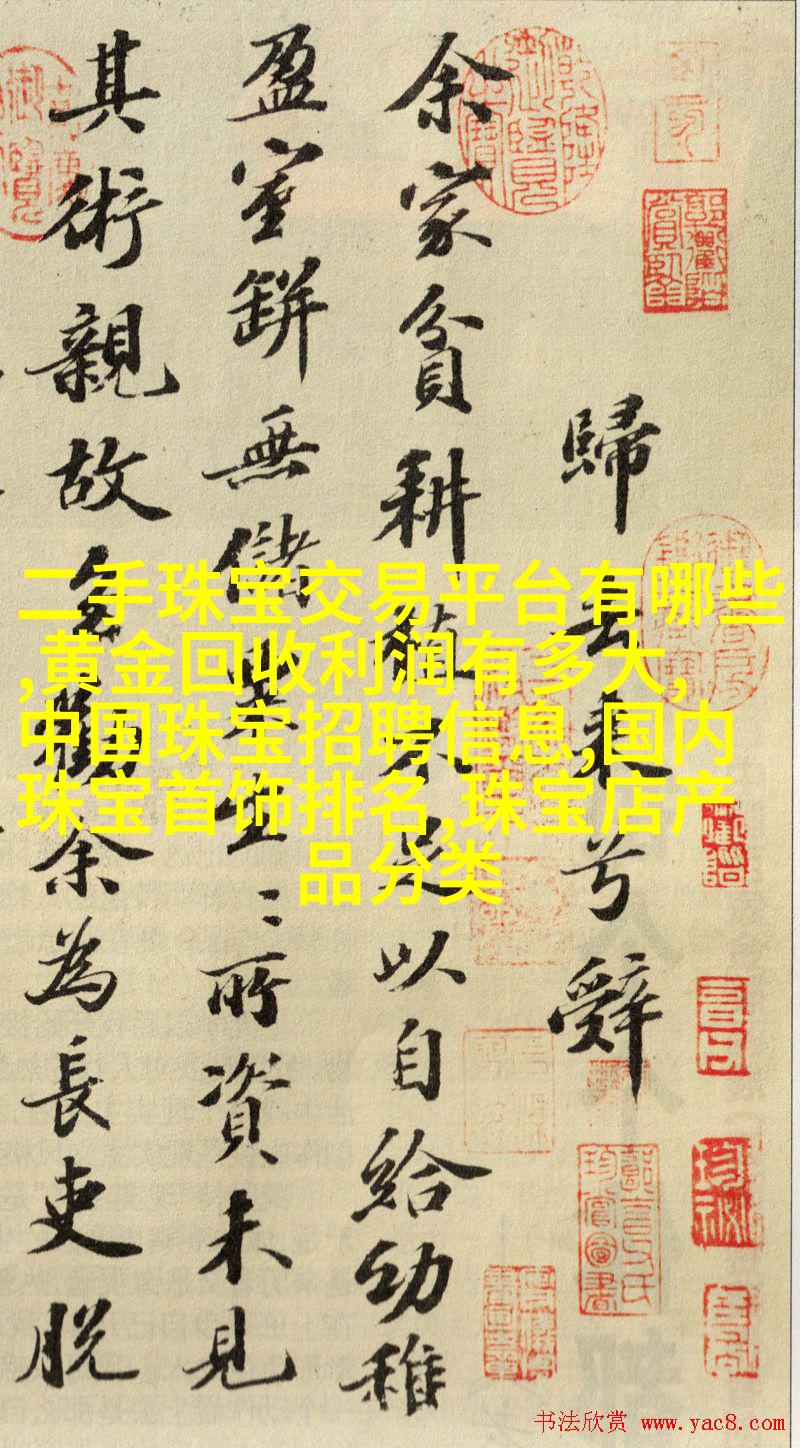 歸去來兮辭
余家貧耕植不足以自給幼稚
盈室缾無儲粟生〻所資未見
其術親故多勸余為長吏脫
二手珠宝交易平台有哪些
,黄金回收利润有多大,
中国珠宝招聘信息,国内
珠宝首饰排名,珠宝店产
品分类
书法欣赏 www.yac8.com